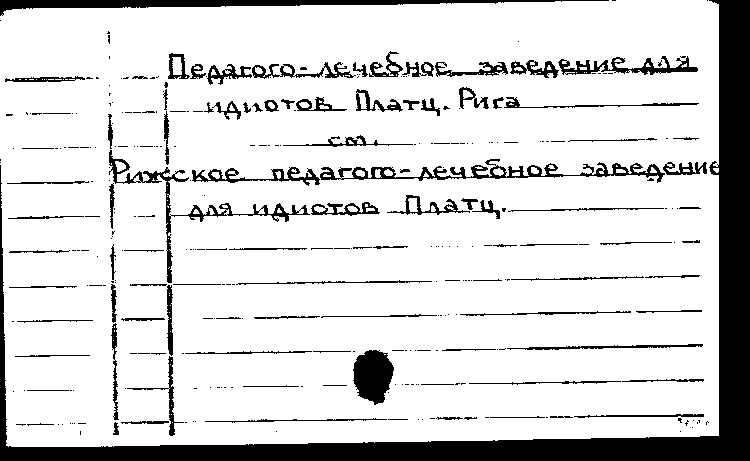 Педагого-лечебное заведение для
идиотов Платц. Рига
см.
Рижское педагого-лечебное заведение
для идиотов Платц.